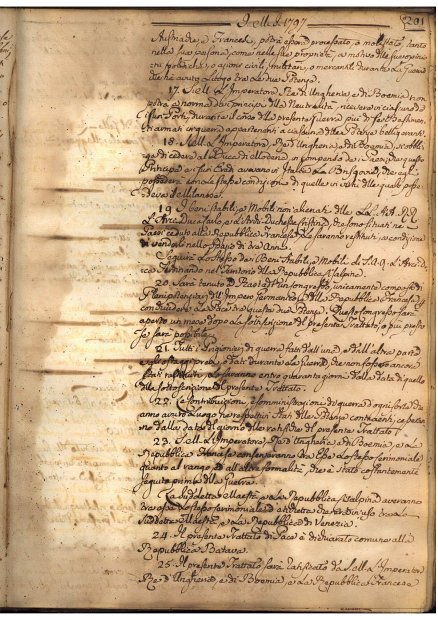 Nell 1797
201
Austriache, e Francesi, potrà esser processato, o molestato, tanto
nella sua persona, come nelle sue proprietà, a motivo delle sue opinio-
ni politiche, o azioni civili, militari, o mercantili durante la Guerra
che ha avuto luogo tra le due Potenze.
17. S. M. L'Imperatore, Re di Ungheria, e di Boemia non
potrà a norma de' principj della Neutralità, ricevere in ciascuno de
suoi Porti, durante il corso della presente Guerra più di sei Bastimen-
ti armati in guerra appartenenti a ciascuna delle Potenze belligeranti.
18. S. M. L'Imperatore, Re di Ungheria, e di Boemia, si obbli-
ga di cedere al Duca di Modena in compenso de' Paesi, che questo
Principe, e i suoi Eredi avevano in Italia, la Brisgovia, che egli
possederà con le stesse condizioni di quelle in virtù delle quali posse-
deva il Modanese.
19. I beni stabili, e Mobili non alienati delle LL. AA. RR.
L'Arciduca Carlo, e l'Arci-Duchessa Cristina, che sono situati ne'
Paesi ceduti alla Repubblica Francese, le saranno restituiti, a condizione
di venderli nello spazio di tre Anni.
Seguirà lo stesso dei Beni Stabili, e Mobili di S. A. R. l'Arci-
Duca Ferdinando nel Territorio della Repubblica Cisalpina.
20. Sarà tenuto a Rastadt un Congresso, unicamente composto di
Plenipotenziarj dell'Impero Germanico, e della Repubblica Francese per
conchiudere la Pace tra queste due Potenze. Questo Congresso sarà
aperto un mese dopo la sottoscrizione del presente Trattato, o più presto
se sarà possibile.
21. Tutti i Prigionieri di guerra fatti dall'una, e dall'altra parte
e gli ostaggi presi, o dati durante la Guerra, che non fossero ancora
stati restituiti, lo saranno entro quaranta giorni dalla data di quello
della sottoscrizione del presente Trattato.
22. Le Contribuzioni, e somministrazioni di guerra d'ogni sorte, che
anno avuto luogo ne' rispettivi Stati delle Potenze contraenti, cesse-
ranno dalla data del giorno delle ratifiche del presente Trattato.
23. S. M. L'Imperatore, Re di Ungheria, e di Boemia, e la
Repubblica Francese conserveranno tra Esse lo stesso cerimoniale
quanto al rango, ed all'altre formalità, che è stato costantemente
seguito prima della Guerra.
La suddetta Maestà, e la Repubblica Cisalpina averanno
tra esse lo stesso cerimoniale di etichetta che era in uso tra la
suddetta Maestà, e la Repubblica di Venezia.
24. Il presente Trattato di Pace è dichiarato comune alla
Repubblica Batava.
25. Il presente Trattato sarà ratificato da S. M. L'Imperatore
Re d'Ungheria, e di Boemia, e la Repubblica Francese